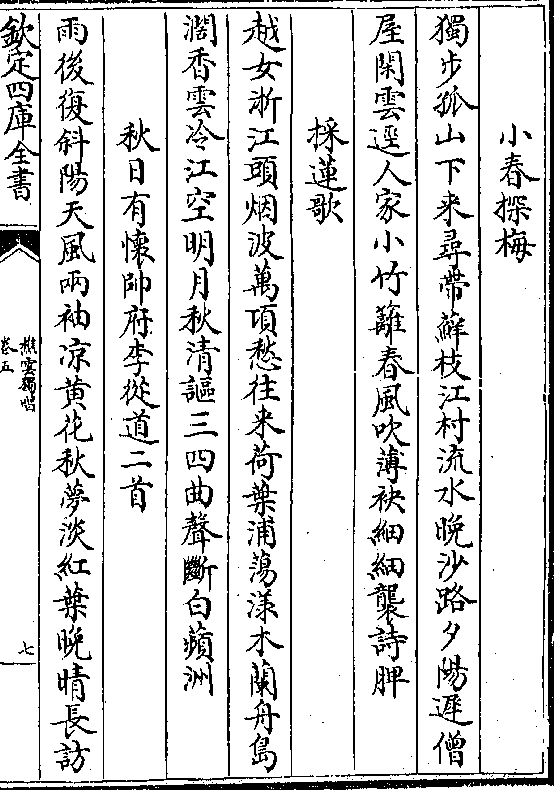 小春探梅
獨步孤山下来尋帶蘚枝江村流水晚沙路夕陽遲僧
屋閑雲逕人家小竹籬春風吹薄袂細細襲詩脾
採蓮歌
越女浙江頭烟波萬頃愁往来荷葉浦蕩漾木蘭舟島
濶香雲冷江空明月秋清謳三四曲聲斷白蘋洲
秋日有懷帥府李從道二首
雨後復斜陽天風兩袖凉黄花秋夢淡紅葉晚晴長訪
欽定四庫全書
樵雲獨唱
卷五
七